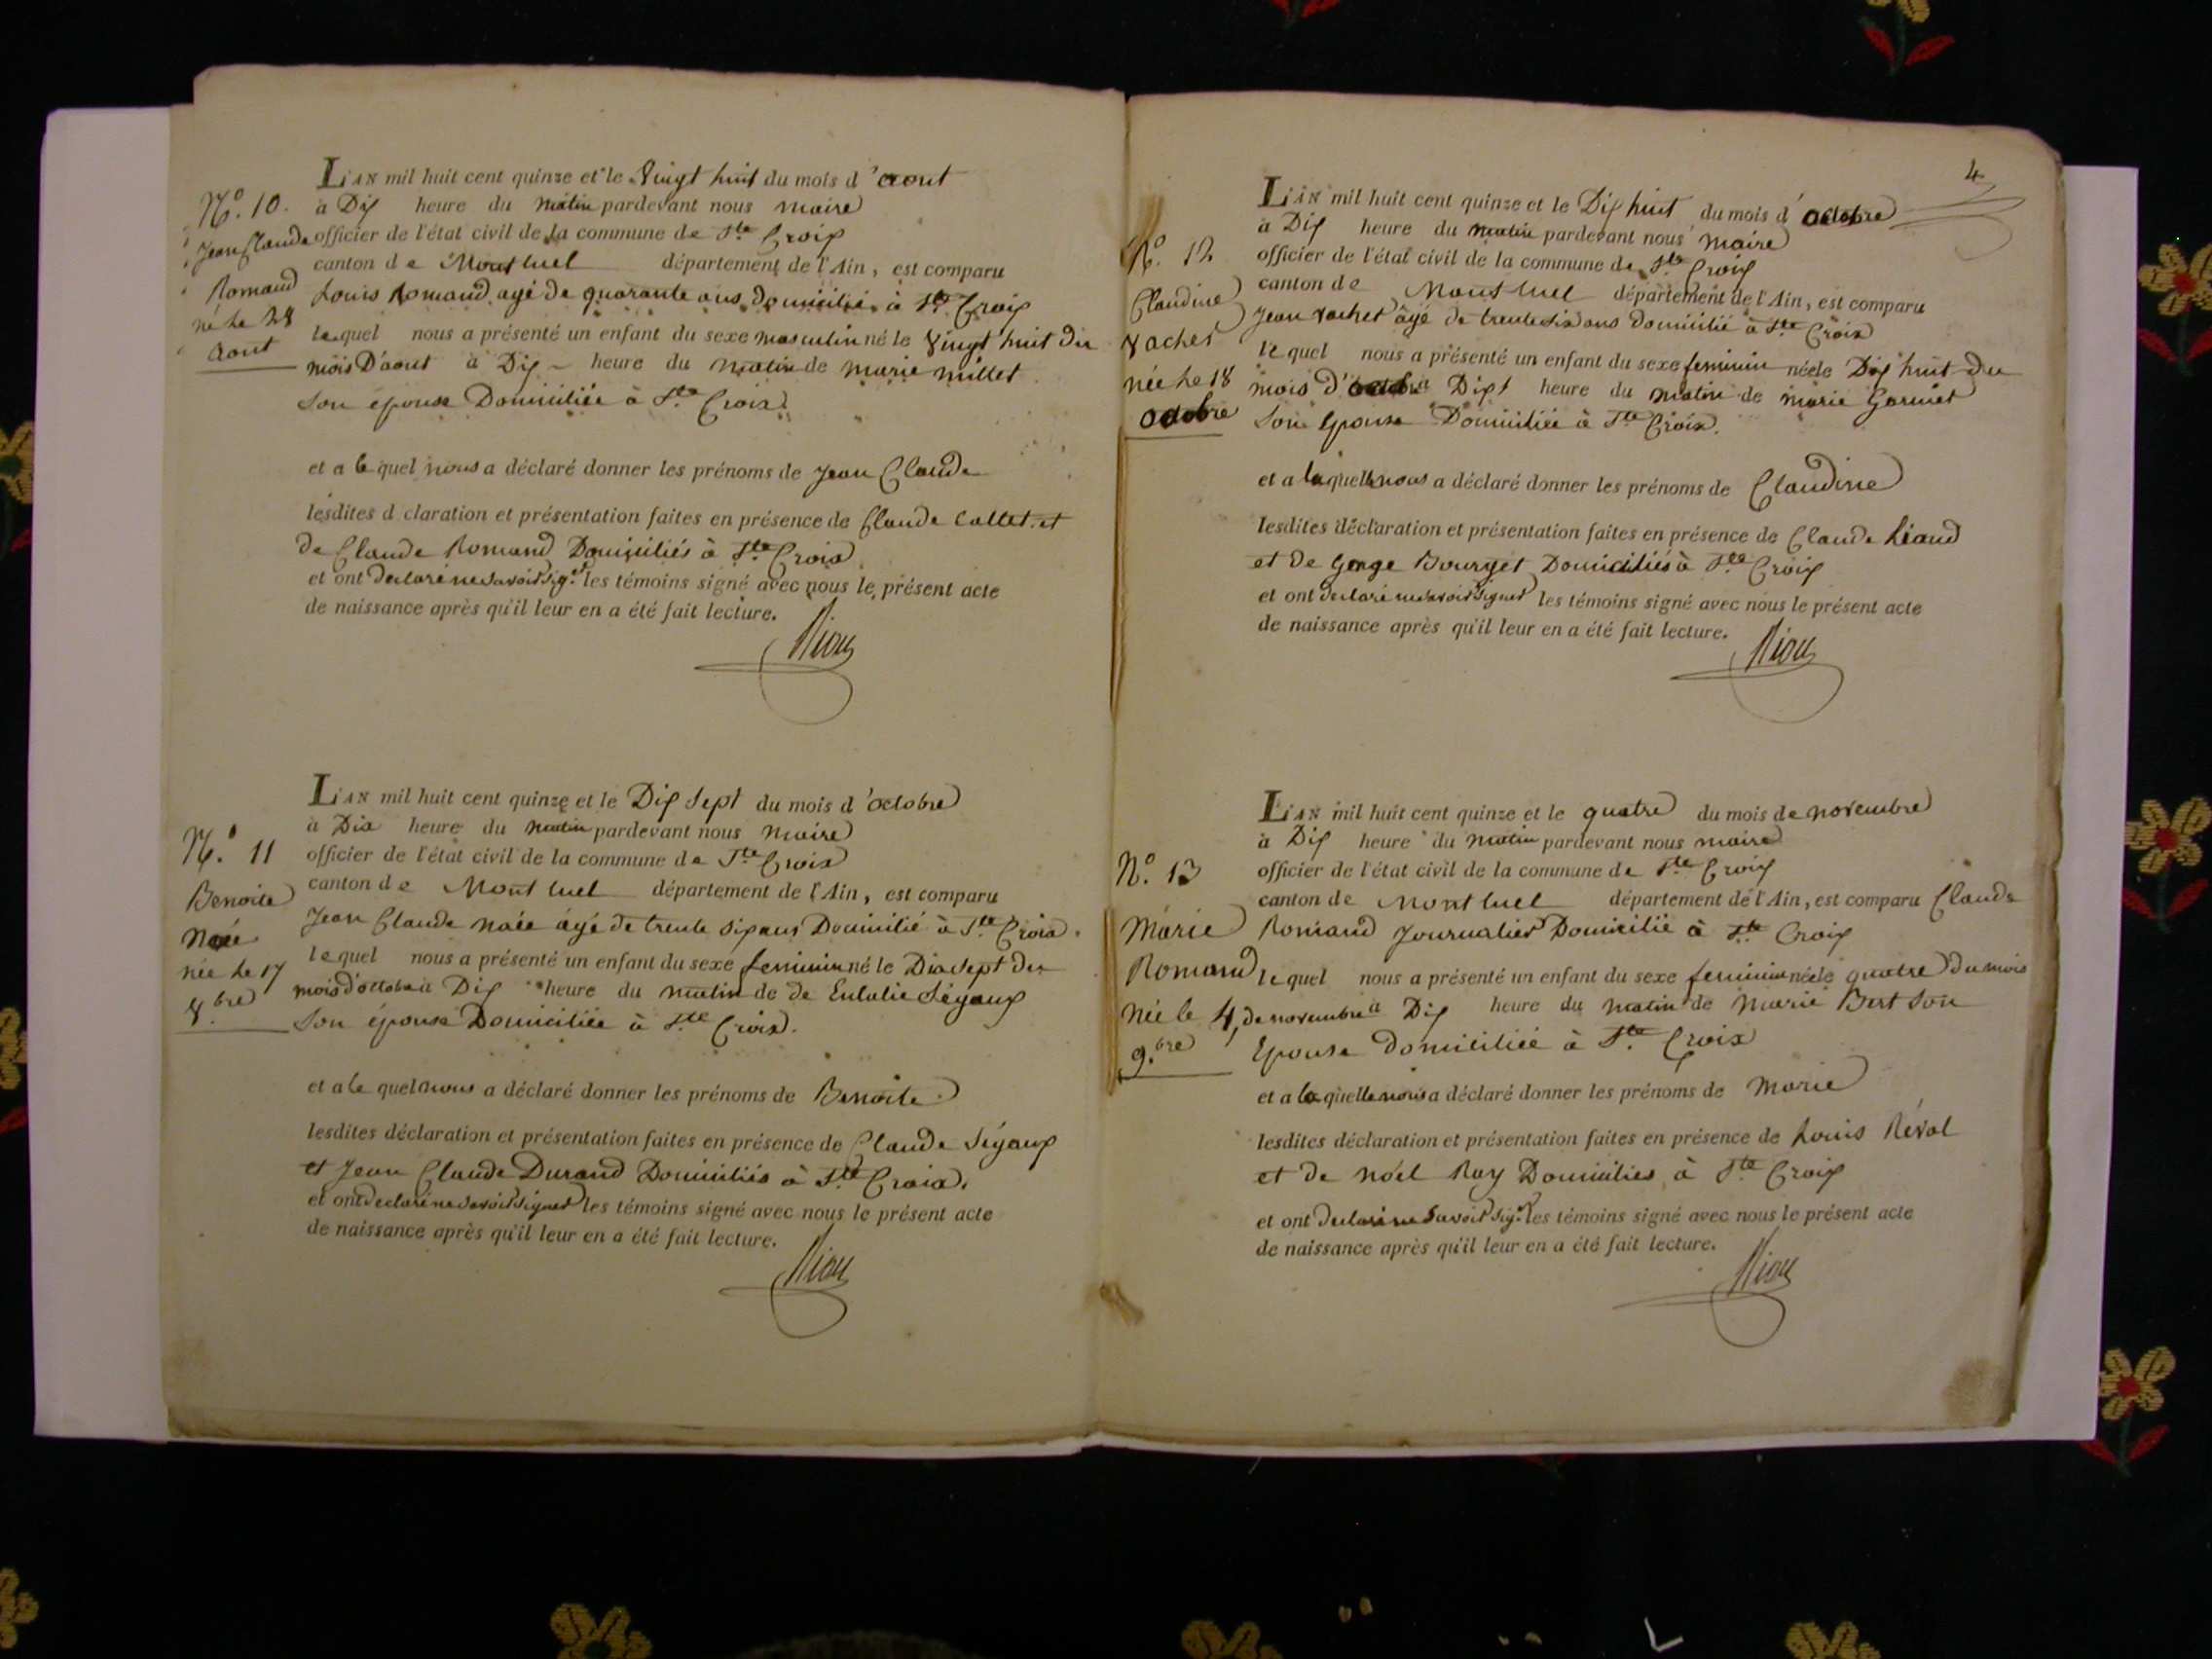 L'AN mil huit cent quinze et le Vingt huit du mois d'aout
N.o 10. à Dix heure du matin pardevant nous maire
Jean Claude officier de l'état civil de la commune de Ste Croix
canton de Montluel département de l'Ain, est comparu
Romand Louis Romand agé de quarante ans domicilié à Ste Croix
né le 28 lequel nous a présenté un enfant du sexe masculin né le Vingt huit du
Aout mois D'aout à Dix heure du matin de marie millet
Son épouse Domiciliée à Ste Croix.
et a le quel nous a déclaré donner les prénoms de Jean Claude
lesdites d claration et présentation faites en présence de Claude Collet et
de Claude Romand Domiciliés à Ste Croix
et ont declaré ne savoir sig.er les témoins signé avec nous le présent acte
de naissance après qu'il leur en a été fait lecture.
L'AN mil huit cent quinze et le Dix Sept du mois d'octobre
à Dix heure du matin pardevant nous maire
N.o 11 officier de l'état civil de la commune de Ste Croix
Benoite canton de Montluel département de l'Ain, est comparu
Jean Claude Naée âgé de trente six ans Domicilié à Ste Croix.
Naée
née le 17 lequel nous a présenté un enfant du sexe feminin né le Dix Sept du
8.bre mois d'octobre à Dix heure du matin de de Eulalie Ségaux
Son épouse Domiciliée à Ste Croix.
et a le quel nous a déclaré donner les prénoms de Benoite
lesdites déclaration et présentation faites en présence de Claude Ségaux
et Jean Claude Durand Domiciliés à Ste Croix.
et ont declaré ne savoir signer les témoins signé avec nous le présent acte
de naissance après qu'il leur en a été fait lecture.
4
L'AN mil huit cent quinze et le Dix huit du mois d'octobre
à Dix heure du matin pardevant nous maire
N.o 12 officier de l'état civil de la commune de Ste Croix
Claudine canton de Montluel département de l'Ain, est comparu
Jean Vacher âgé de trente six ans domicilié à Ste Croix
Vacher lequel nous a présenté un enfant du sexe feminin née le Dix huit du
née le 18 mois d' à heure du matin de marie
Octobre Son Epouse Domiciliée à Ste Croix.
et a laquelle nous a déclaré donner les prénoms de Claudine
lesdites déclaration et présentation faites en présence de Claude Liaud
et de George Bourget Domiciliés à Ste Croix
et ont declaré ne savoir signer les témoins signé avec nous le présent acte
de naissance après qu'il leur en a été fait lecture.
L'AN mil huit cent quinze et le quatre du mois de novembre
à Dix heure du matin pardevant nous maire
N.o 13 officier de l'état civil de la commune de Ste Croix
canton de Montluel département de l'Ain, est comparu Claude
Marie Romand Journalier Domicilié à Ste Croix
Romand lequel nous a présenté un enfant du sexe feminin née le quatre du mois
née le 4, de novembre à Dix heure du matin de Marie Bert Son
9.bre Epouse domiciliée à Ste Croix
et a la quelle nous a déclaré donner les prénoms de Marie
lesdites déclaration et présentation faites en présence de Louis Réval
et de Noël Ray Domiciliés à Ste Croix
et ont declaré ne savoir sig.er les témoins signé avec nous le présent acte
de naissance après qu'il leur en a été fait lecture.